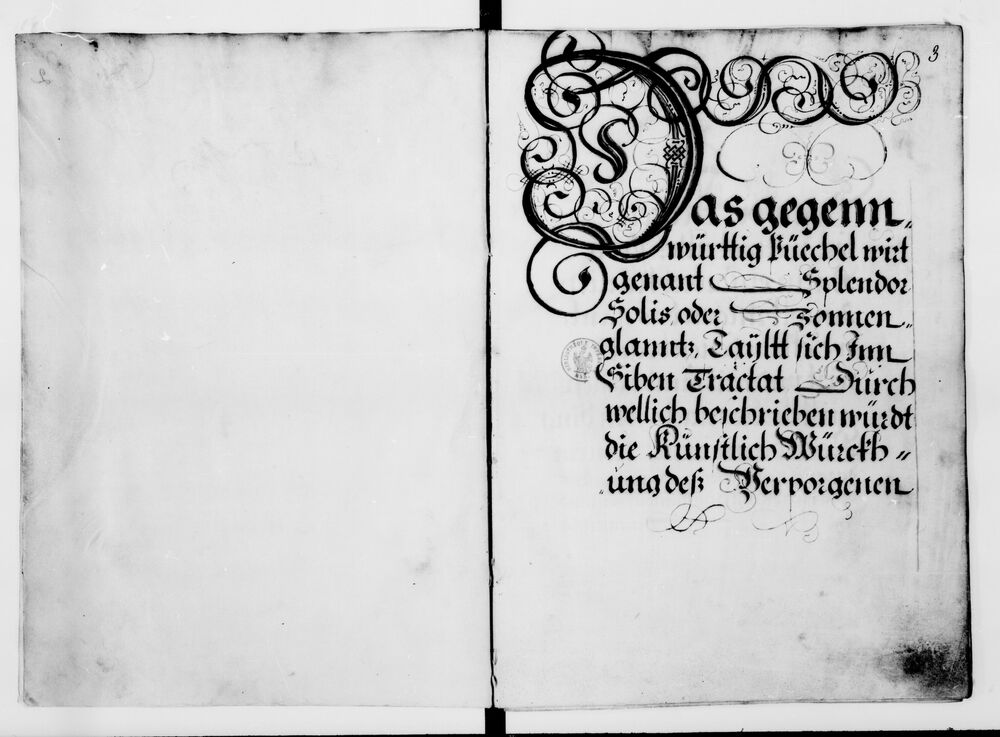 3
Das gegenn„
württig Püechel wirt
genant Splendor
Solis oder Sonnen„
glanntz, Taÿltt sich Inn
Siben Tractat Durch
wellich beschrieben würdt
die Künstlich Würckh„
„ung deß Verporgenen